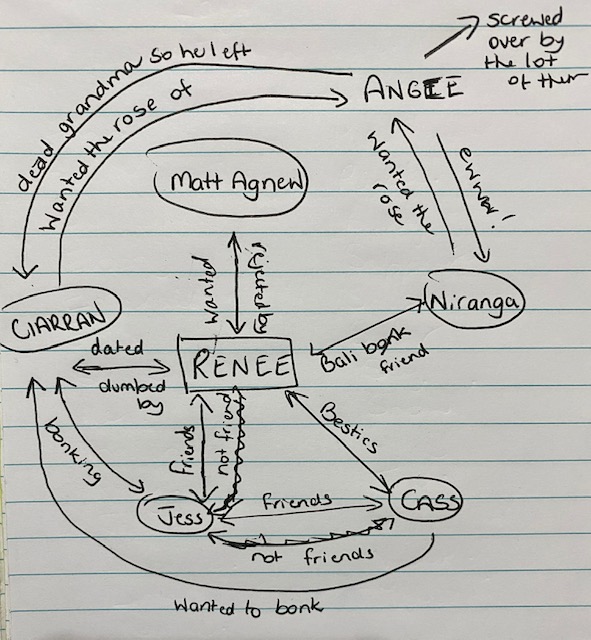 screwed
over by
the lot
of them
ANGIE
dead grandma so he left
Wanted the rose of
Matt Agnew
Wanted the
rose
ewww!
Wanted
rejected by
Niranga
CIARRAN
dated
dumbed
by
RENEE
Bali bonk
friend
bonking
Friends
not friend
Besties
Jess
Friends
CASS
not friends
Wanted to bonk